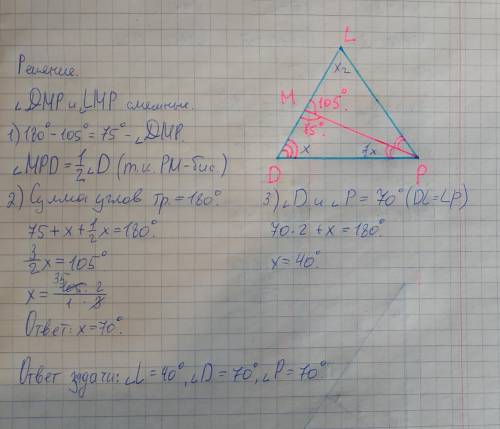 Решение.
∠DMP и ∠LMP смежные.
1) 180° - 105° = 75° - ∠DMP.
∠MPD = 1/2 ∠D (т.к. PM-бис.)
2) Сумма углов тр. = 180°
75 + x + 1/2 x = 180°
3/2 x = 105°
x = 35 105 · 2 / 1 · 3
Ответ: x = 70°.
L
x₂
M
105°
75°
D
x
P
3) ∠D и ∠P = 70° (DL = LP)
70 · 2 + x = 180°.
x = 40°.
Ответ задачи: ∠L = 40°, ∠D = 70°, ∠P = 70°